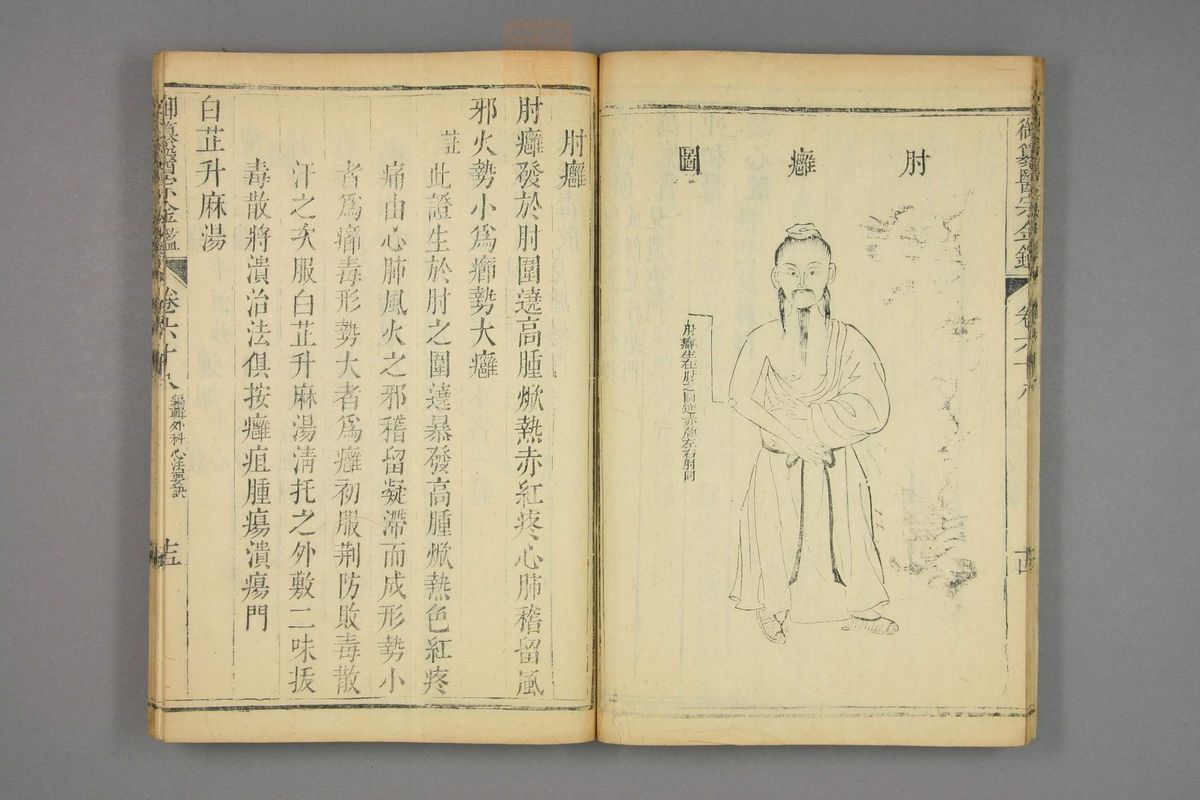 御纂醫宗金鑑
卷六十八
十四
肘癰圖
肘癰生在肘之圍遶赤腫左右肘同
肘癰
肘癰發於肘圍遶高腫焮熱赤紅疼心肺稽留風
邪火勢小爲癤勢大癰
註
此證生於肘之圍遶暴發高腫焮熱色紅疼
痛由心肺風火之邪稽留凝滯而成形勢小
者爲癤毒形勢大者爲癰初服荆防敗毒散
汗之次服白芷升麻湯淸托之外敷二味拔
毒散將潰治法俱按癰疽腫瘍潰瘍門
白芷升麻湯
御纂醫宗金鑑
卷六十八
編輯外科心法要訣
十五